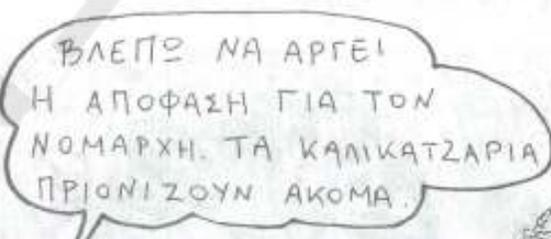 ΒΛΕΠΩ ΝΑ ΑΡΓΕΙ
Η ΑΠΟΦΑΣΗ ΓΙΑ ΤΟΝ
ΝΟΜΑΡΧΗ. ΤΑ ΚΑΛΙΚΑΤΖΑΡΙΑ
ΠΡΙΟΝΙΖΟΥΝ ΑΚΟΜΑ.